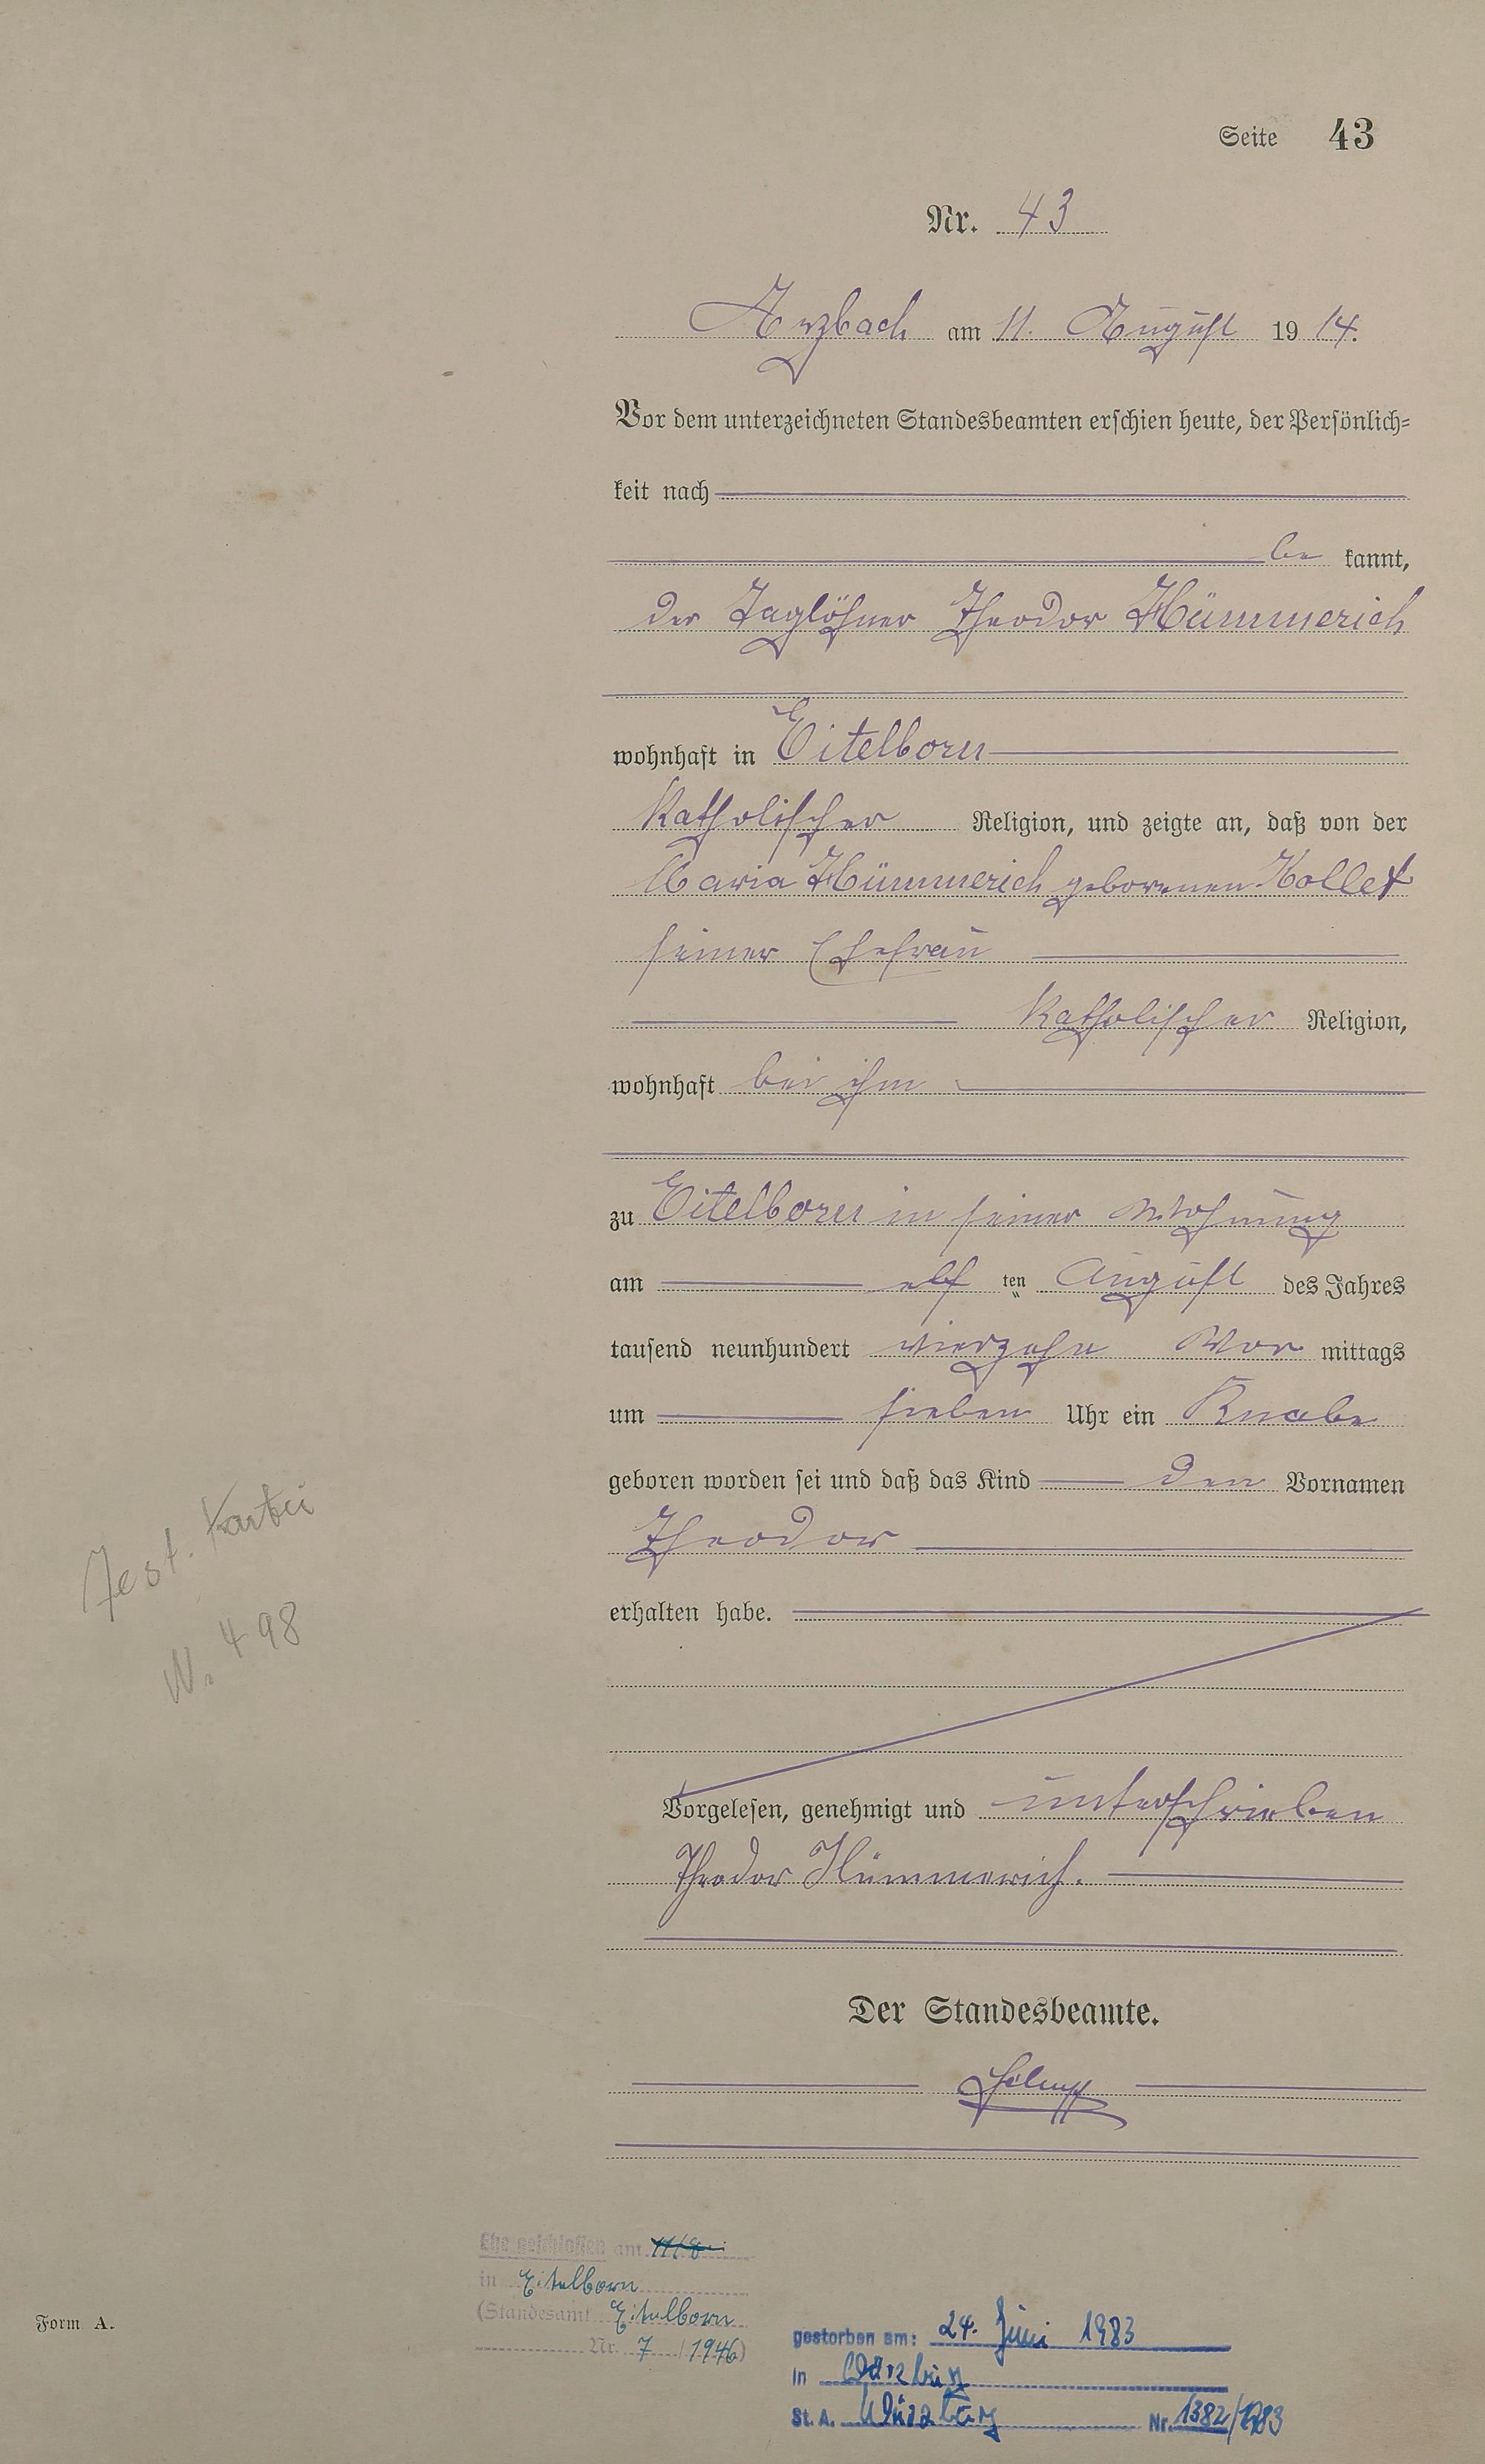 Seite 43
Nr. 43
Arzbach am 11. August 1914.
Vor dem unterzeichneten Standesbeamten erschien heute, der Persönlich=
keit nach
be kannt,
der Taglöhner Theodor Hümmerich
wohnhaft in Eitelborn
katholischer Religion, und zeigte an, daß von der
Maria Hümmerich geborenen Kollet
seiner Ehefrau
katholischer Religion,
wohnhaft bei ihm
zu Eitelborn in seiner Wohnung
am elf ten August des Jahres
tausend neunhundert vierzehn Vor mittags
um sieben Uhr ein Knabe
geboren worden sei und daß das Kind den Vornamen
Theodor
erhalten habe.
Test. Kartei
N. 498
Vorgelesen, genehmigt und unterschrieben
Theodor Hümmerich.
Der Standesbeamte.
Ehe geschlossen am
in Eitelborn
(Standesamt Eitelborn
Nr. 7 / 1946)
Form A.
gestorben am: 24. Juni 1983
in Würzburg
St. A. Würzburg Nr. 1382/1983